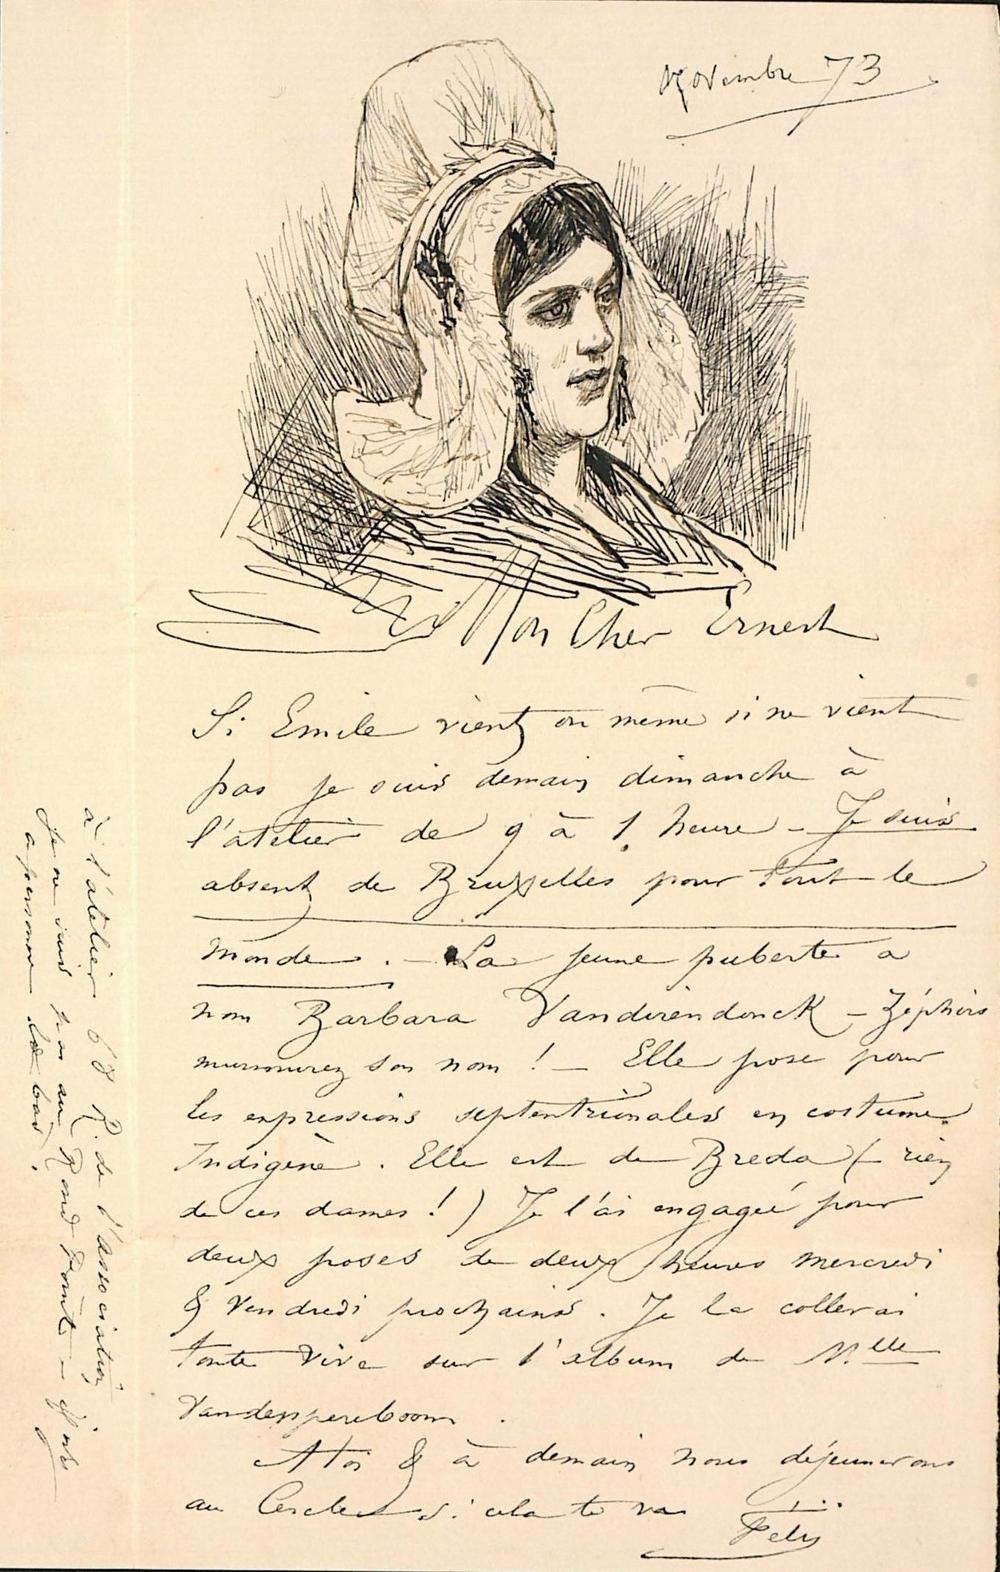 Novembre 73
Mon Cher Ernest
Si Emile vient ou même si ne vient
pas je suis demain dimanche à
l'atelier de 9 à 1 heure – Je suis
absent de Bruxelles pour tout le
monde . – La jeune puberte a
nom Barbara Vanderendonck – Zéphirs
murmurez son nom ! – Elle pose pour
les expressions septentrionales en costume
Indigène . Elle est de Breda (– rien
de ces dames ! ) Je l'ai engagée pour
deux poses de deux heures mercredi
& vendredi prochains . Je la collerai
toute vive sur l'album de Mlle
Vandenpereboom .
A toi & à demain nous déjeunerons
au Cercle si cela te va
Fély
à l'atelier 68 R. de l'association
Je ne suis pas au Rond Point –
a personne là bas .